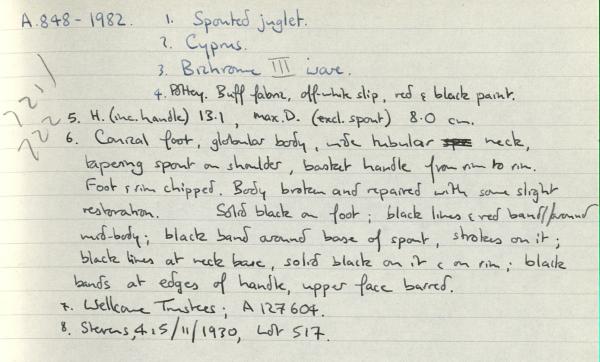 A.848-1982. 1. Spouted juglet.
2. Cyprus.
3. Bichrome III ware.
4. Pottery. Buff fabric, off-white slip, red & black paint.
5. H. (inc. handle) 13.1, max. D. (excl. spout) 8.0 cm.
6. Conical foot, globular body, wide tubular neck,
tapering spout on shoulder, basket handle from rim to rim.
Foot & rim chipped. Body broken and repaired with some slight
restoration. Solid black on foot; black lines & red band around
mid-body; black band around base of spout, strokes on it;
black lines at neck base, solid black on it & on rim; black
bands at edges of handle, upper face barred.
7. Wellcome Trustees; A 127604.
8. Stevens, 4 & 5/11/1930, Lot 517.